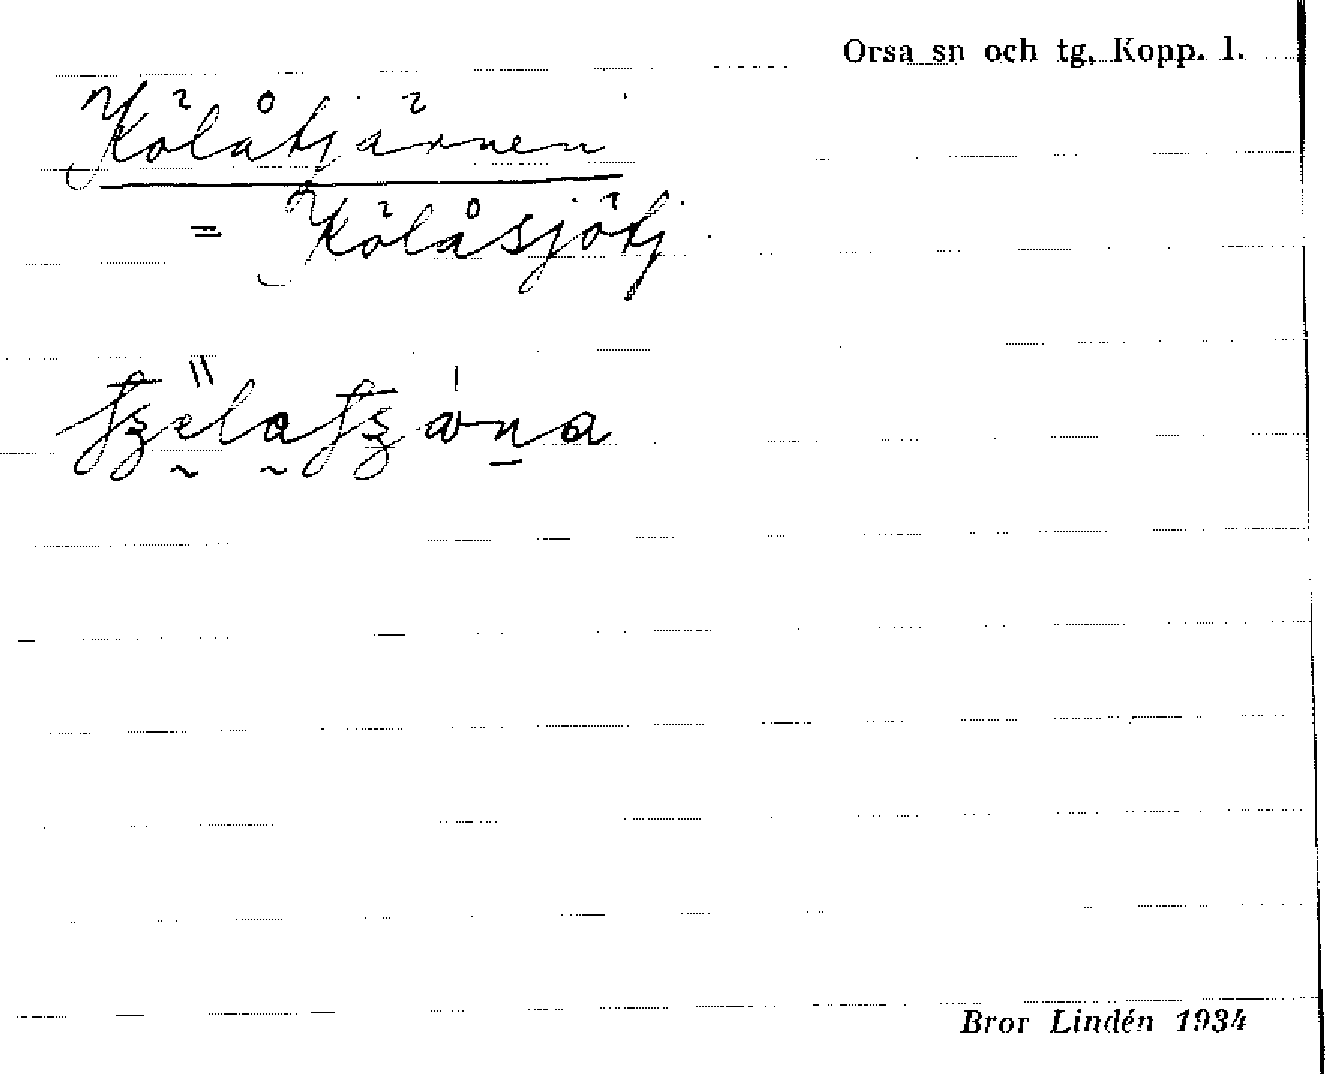 Orsa sn och tg. Kopp. l.
Kölåtjärnen
= Kölåsjötj.
Bror Lindén 1934